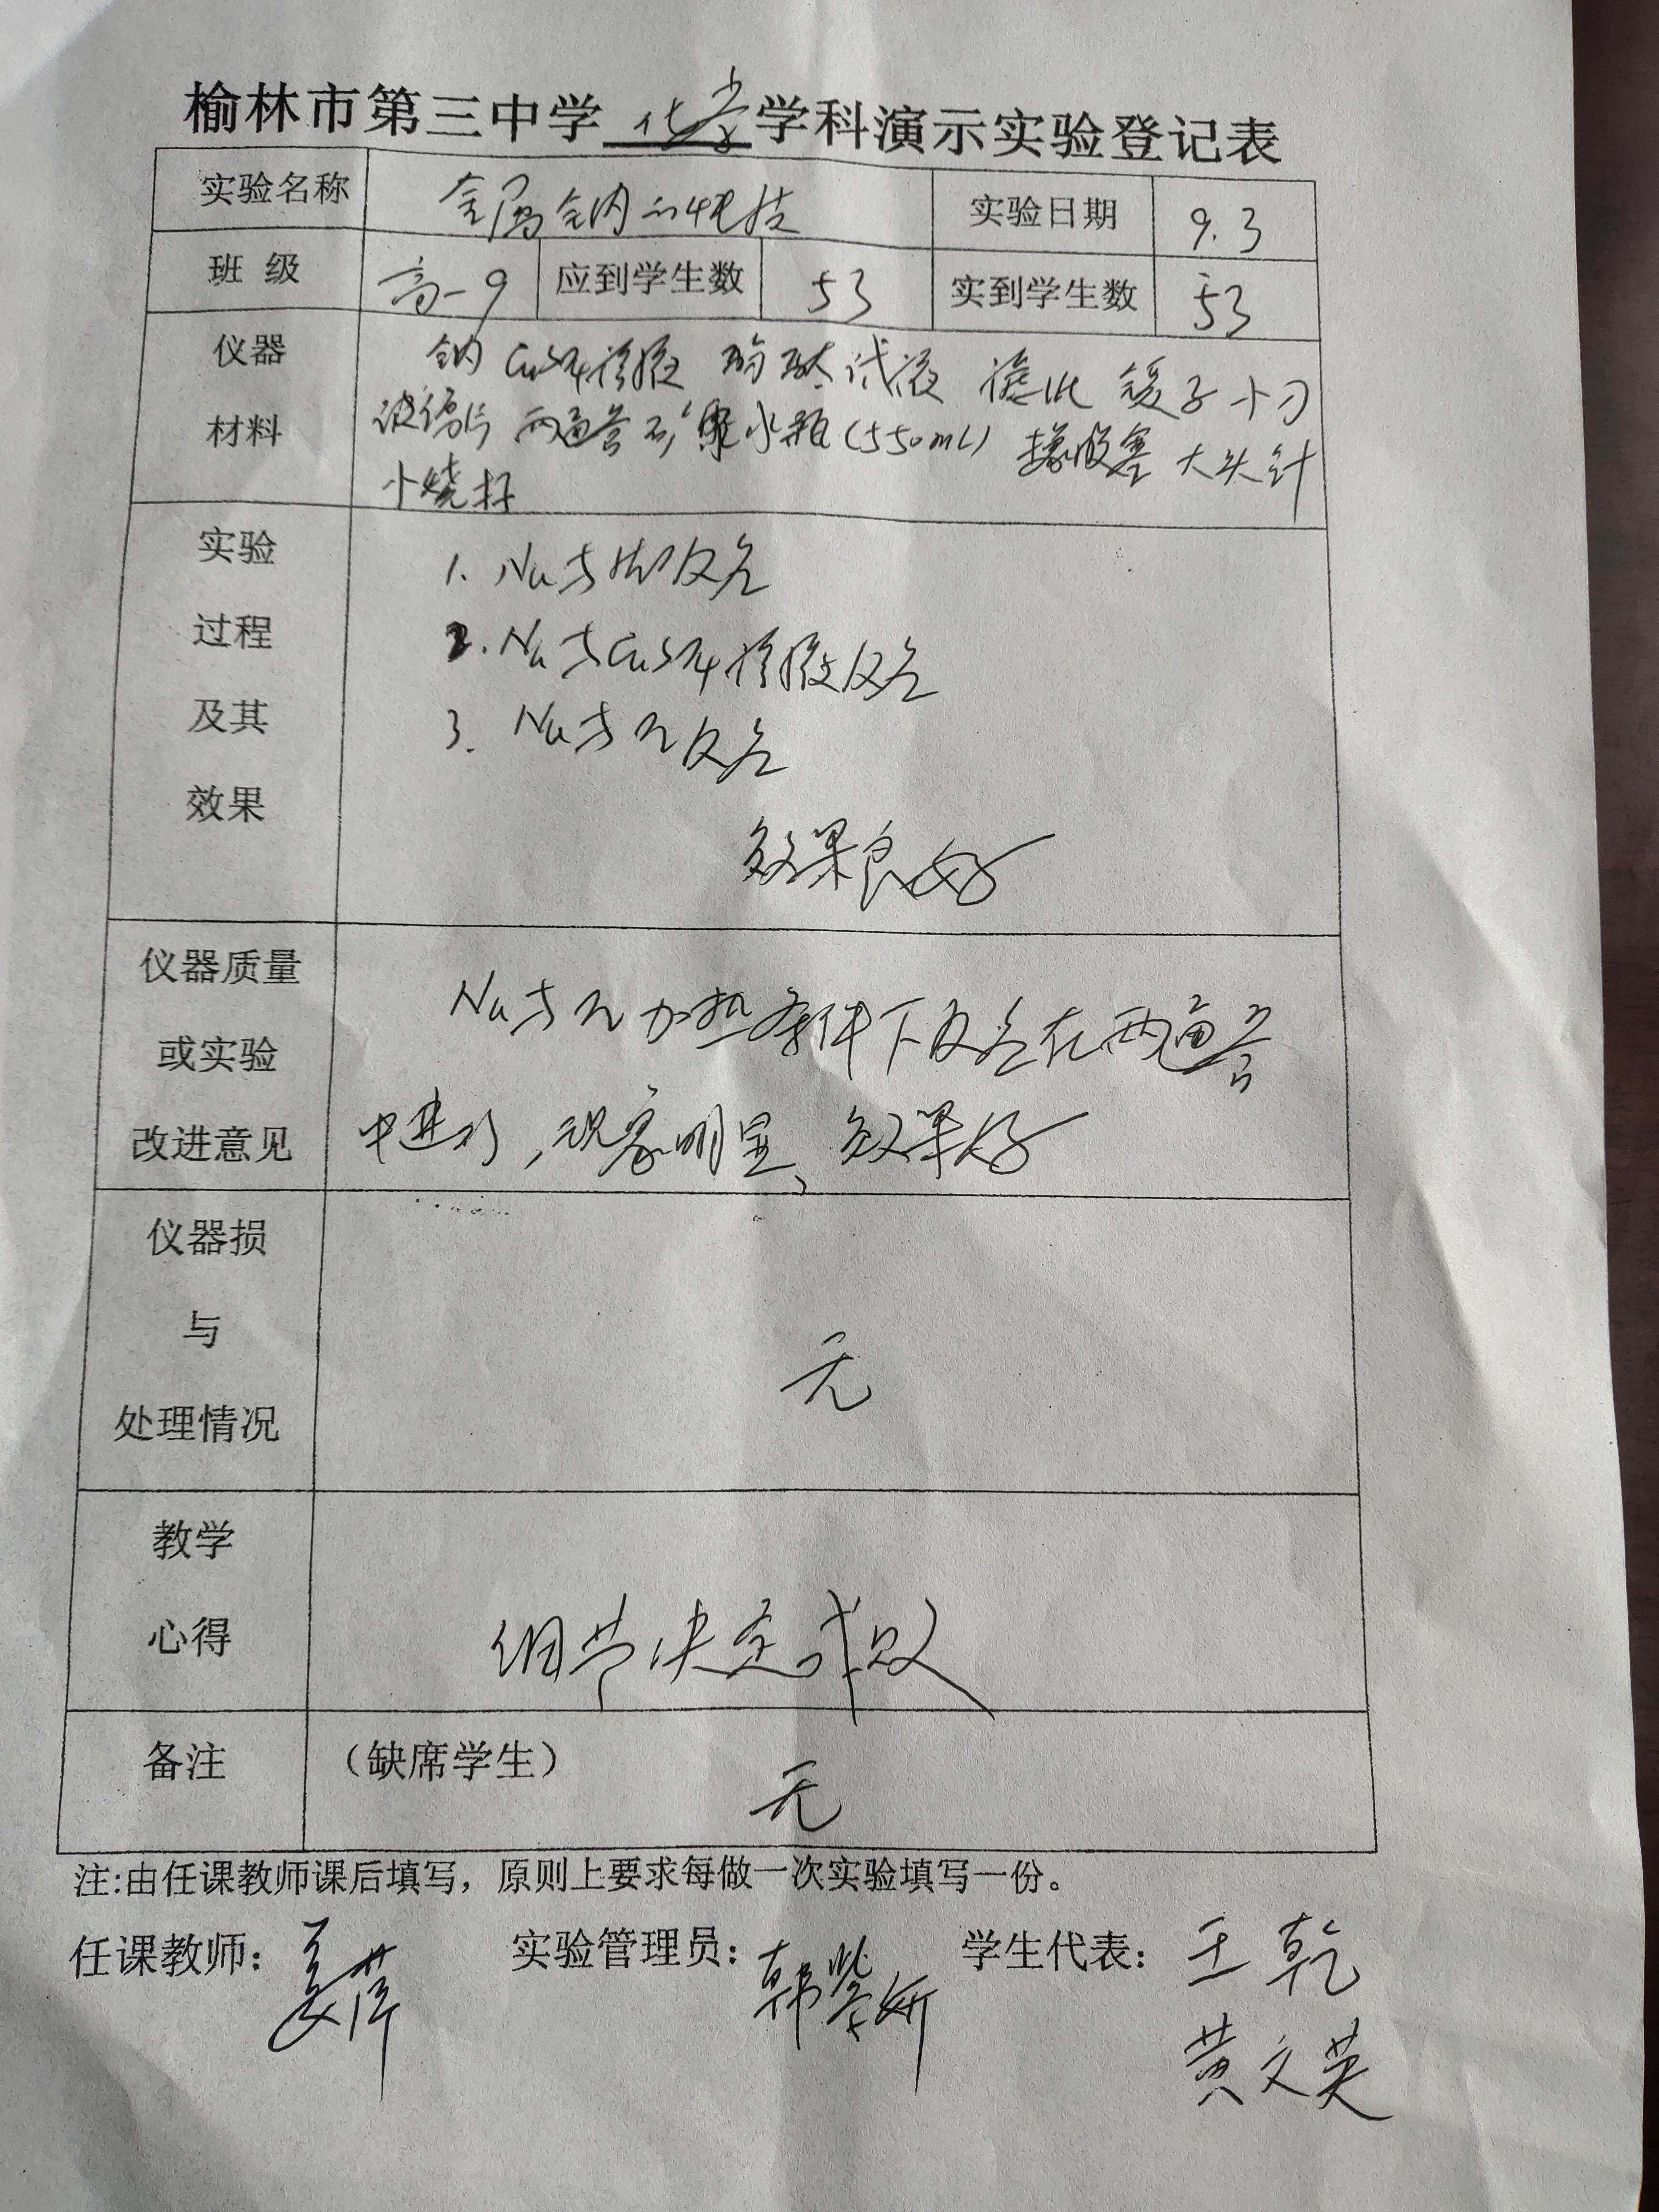 榆林市第三中学 化学 学科演示实验登记表
实验名称 金属钠的性质 实验日期 9.3
班 级 高一9 应到学生数 53 实到学生数 53
仪器 钠 CuSO4溶液 酚酞试液 滤纸 镊子 小刀
材料 玻璃片 两通管 矿泉水瓶(550mL) 橡胶塞 大头针
小烧杯
实验
过程
及其
效果
1. Na与水反应
2. Na与CuSO4溶液反应
3. Na与O2反应
效果良好
仪器质量
或实验
改进意见
Na与O2加热条件下反应在两通管
中进行,现象明显、效果好
仪器损
与
处理情况
无
教学
心得
细节决定成败
备注 (缺席学生) 无
注:由任课教师课后填写,原则上要求每做一次实验填写一份。
任课教师: 姜萍 实验管理员: 韩紫妍 学生代表: 王乾
黄文英